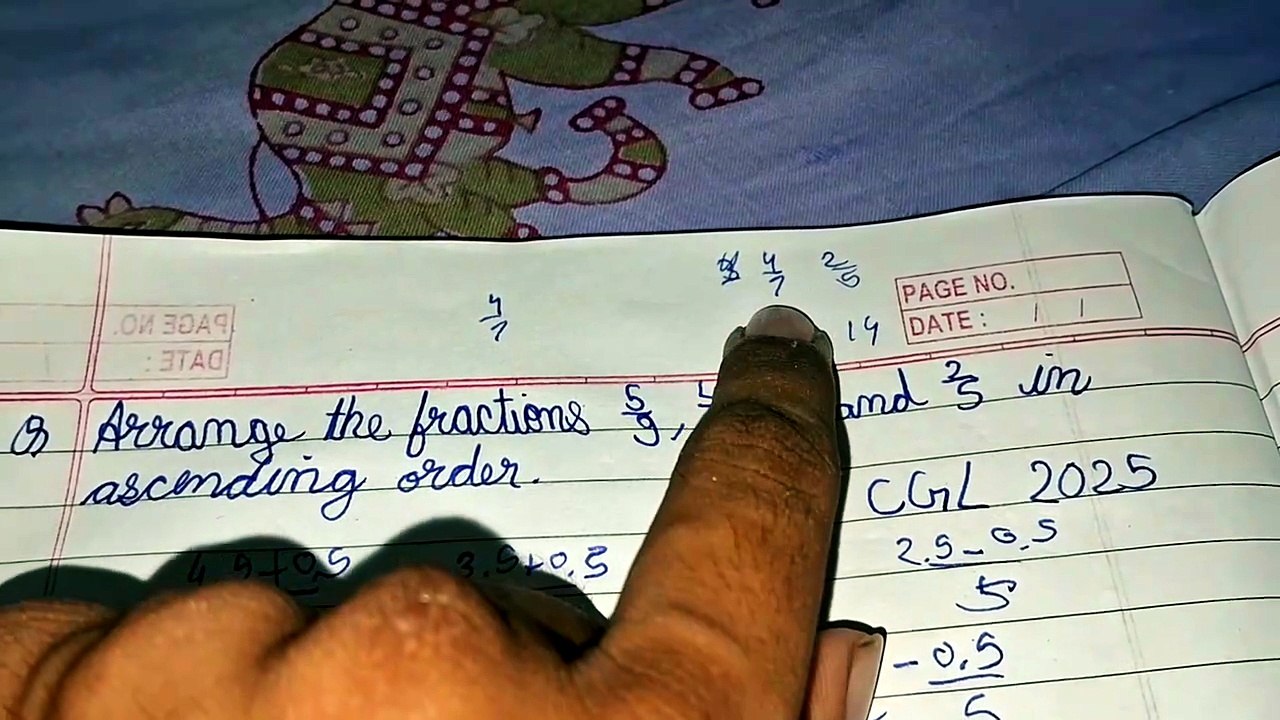 4/7 2/5
PAGE NO.
DATE : / /
PAGE NO.
DATE :
4/7
14
Q Arrange the fractions 5/9, and 2/5 in
ascending order.
CGL 2025
4.5+0.5 3.5+0.5 2.5-0.5
5
-0.5
5